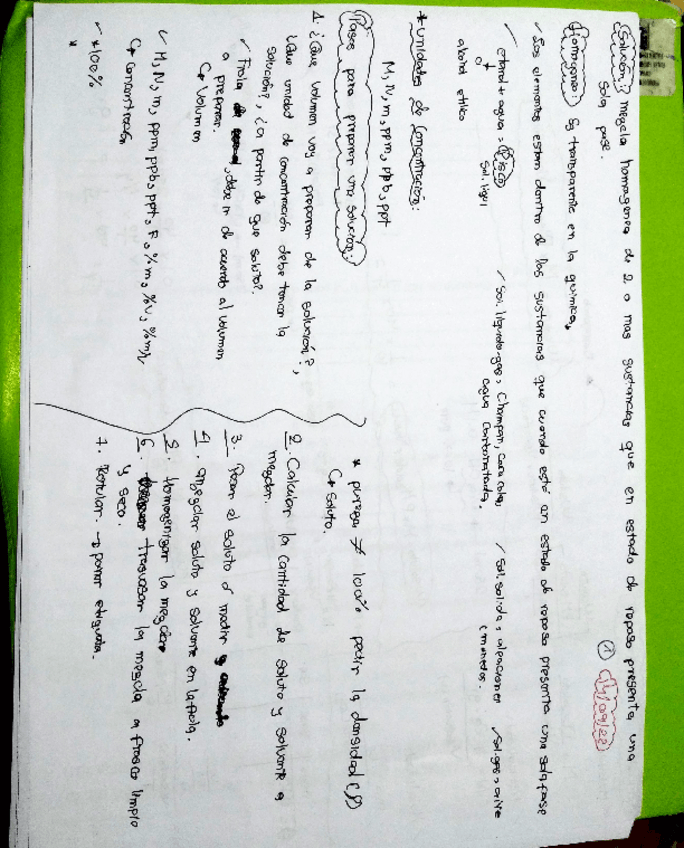 ① 14/09/22
Solución: mezcla homogenea de 2 o mas sustancias que en estado de reposo presenta una
sola fase.
Homogeneo: Es transparente en la química,
✓ Los elementos estan dentro de las sustancias que cuando esté en estado de reposo presenta una sola fase
✓ etanol + agua, Pisco
Sol. liqui
alcohol etilico
✓ Sol. liquido-gas, Champan, coca cola,
agua carbonatada.
✓ Sol. solida, aleaciones
(monedas.
✓ Sol. gas, aire
* unidades de concentración:
M, N, m, ppm, ppb, ppt
Pasos para preparar una solucion:
1. ¿Que volumen voy a preparar de la solución?,
¿Que unidad de concentración debe tener la
solución?, ¿a partir de que soluto?.
✓ Fiola, debe ir de acuerdo al volumen
a preparar.
↳ Volumen
✓ M, N, m, ppm, ppb, ppt, F, %m, %v, %m/v
↳ concentración
✓ *100%
*
* pureza ≠ 100% pedir la densidad (ρ)
↳ Soluto.
2. Calcular la cantidad de soluto y solvente a
mezclar.
3. Pesar el soluto ó medir
4. mezclar soluto y solvente en la fiola.
5. Homogenizar la mezcla
6. trasvasar la mezcla a frasco limpio
y seco.
7. Rotular. → poner etiqueta.